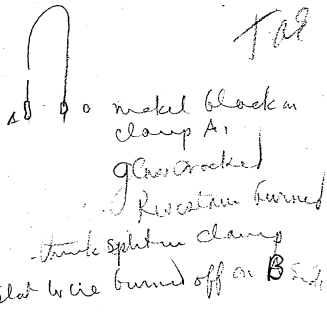 TAE
A o nickel black in
clamp A,
glass cracked
Resistance burned
think split in clamp
Plat wire burned off on B Side